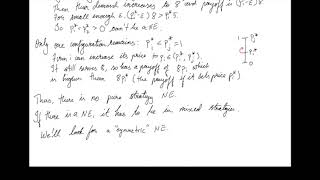 Then their demand increases to 8 and payoff is (Pᵢ*-ε)8
For small enough ε, (Pᵢ*-ε)8 > Pᵢ*5.
So P₁*=P₂*>0 can't be a NE.
Only one configuration remains: Pᵢ* < Pⱼ* ≤ 1
Firm i can increase its price to qᵢ ∈ (Pᵢ*, Pⱼ*)
It still serves 8, so has a payoff of 8qᵢ which
is higher than 8Pᵢ* (the payoff if it sets price Pᵢ*)
Thus, there is no pure strategy NE.
If there is a NE, it has to be in mixed strategies
We'll look for a "symmetric" NE.